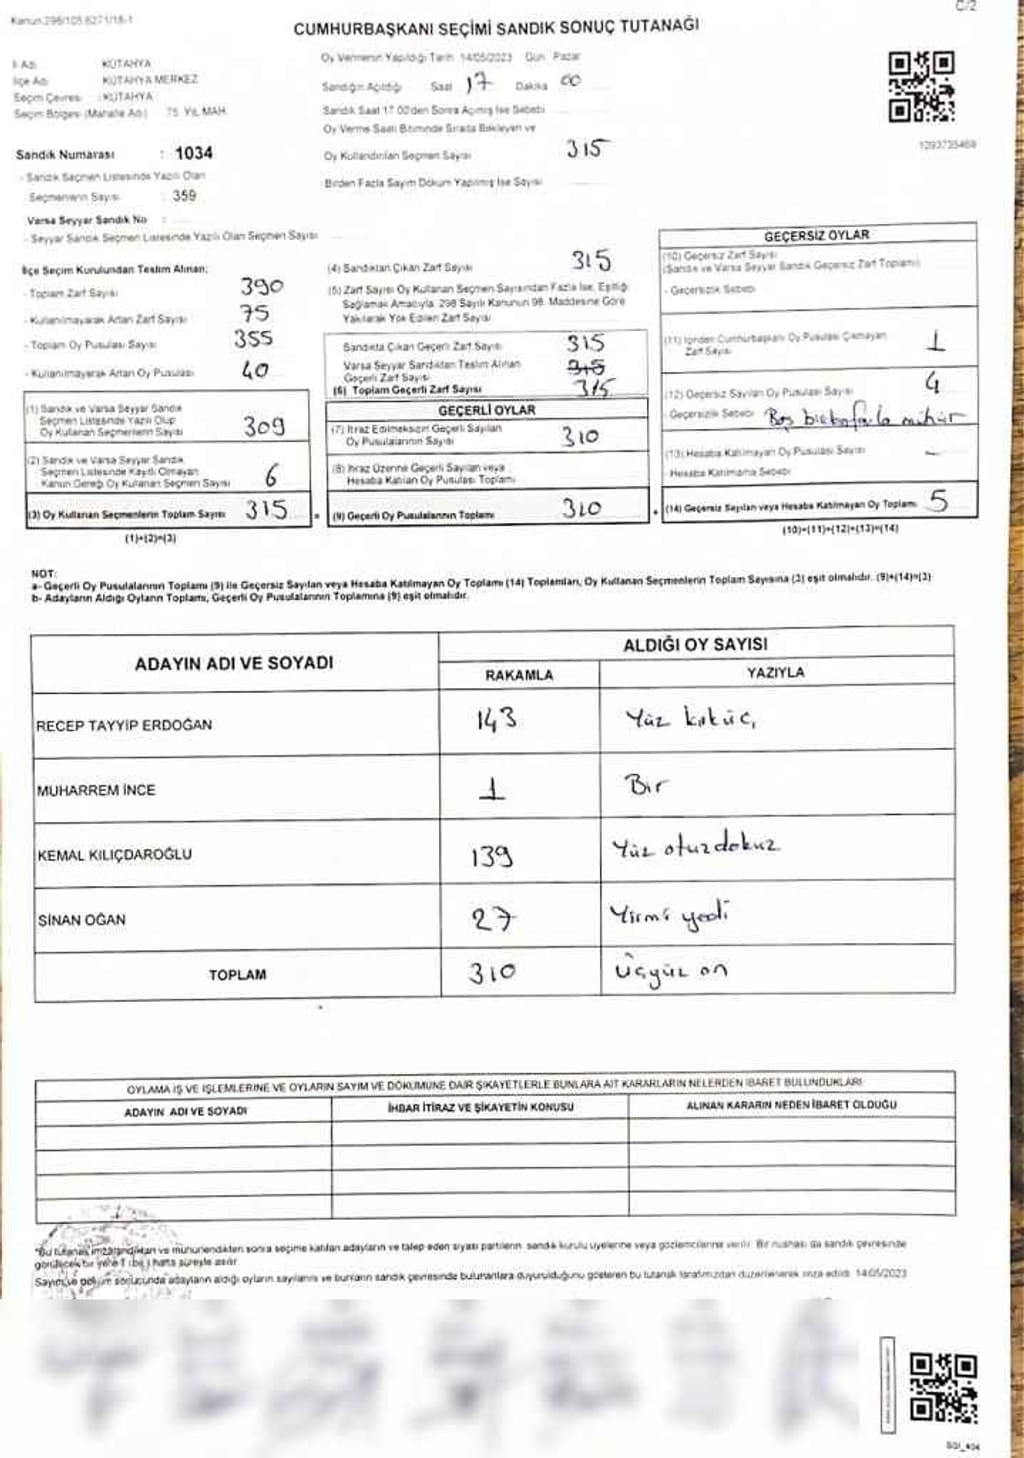 Kanun 298/105 6271/18-1
C/2
CUMHURBAŞKANI SEÇİMİ SANDIK SONUÇ TUTANAĞI
İl Adı KÜTAHYA
İlçe Adı KÜTAHYA MERKEZ
Seçim Çevresi : KÜTAHYA
Seçim Bölgesi (Mahalle Adı) 75. YIL MAH.
Sandık Numarası : 1034
- Sandık Seçmen Listesinde Yazılı Olan
Seçmenlerin Sayısı : 359
Varsa Seyyar Sandık No :
- Seyyar Sandık Seçmen Listesinde Yazılı Olan Seçmen Sayısı
Oy Vermenin Yapıldığı Tarih 14/05/2023 Gün Pazar
Sandığın Açıldığı Saat 17 Dakika 00
Sandık Saat 17.00'den Sonra Açılmış İse Sebebi
Oy Verme Saati Bitiminde Sırada Bekleyen ve
Oy Kullandırılan Seçmen Sayısı 315
Birden Fazla Sayım Döküm Yapılmış İse Sayısı
1293735469
İlçe Seçim Kurulundan Teslim Alınan;
- Toplam Zarf Sayısı 390
- Kullanılmayarak Artan Zarf Sayısı 75
- Toplam Oy Pusulası Sayısı 355
- Kullanılmayarak Artan Oy Pusulası 40
(1) Sandık ve Varsa Seyyar Sandık
Seçmen Listesinde Yazılı Olup
Oy Kullanan Seçmenlerin Sayısı 309
(2) Sandık ve Varsa Seyyar Sandık
Seçmen Listesinde Kayıtlı Olmayan
Kanun Gereği Oy Kullanan Seçmen Sayısı 6
(3) Oy Kullanan Seçmenlerin Toplam Sayısı 315
(1)+(2)=(3)
(4) Sandıktan Çıkan Zarf Sayısı 315
(5) Zarf Sayısı Oy Kullanan Seçmen Sayısından Fazla İse, Eşitliği
Sağlamak Amacıyla, 298 Sayılı Kanunun 98. Maddesine Göre
Yakılarak Yok Edilen Zarf Sayısı
Sandıkta Çıkan Geçerli Zarf Sayısı 315
Varsa Seyyar Sandıktan Teslim Alınan
Geçerli Zarf Sayısı 315
(6) Toplam Geçerli Zarf Sayısı 315
GEÇERLİ OYLAR
(7) İtiraz Edilmeksizin Geçerli Sayılan
Oy Pusulalarının Sayısı 310
(8) İtiraz Üzerine Geçerli Sayılan veya
Hesaba Katılan Oy Pusulası Toplamı
(9) Geçerli Oy Pusulalarının Toplamı 310
GEÇERSİZ OYLAR
(10) Geçersiz Zarf Sayısı
(Sandık ve Varsa Seyyar Sandık Geçersiz Zarf Toplamı)
- Geçersizlik Sebebi
(11) İçinden Cumhurbaşkanı Oy Pusulası Çıkmayan
Zarf Sayısı 1
(12) Geçersiz Sayılan Oy Pusulası Sayısı 4
- Geçersizlik Sebebi Boş
(13) Hesaba Katılmayan Oy Pusulası Sayısı -
- Hesaba Katılmama Sebebi
(14) Geçersiz Sayılan veya Hesaba Katılmayan Oy Toplamı 5
(10)+(11)+(12)+(13)=(14)
NOT:
a- Geçerli Oy Pusulalarının Toplamı (9) ile Geçersiz Sayılan veya Hesaba Katılmayan Oy Toplamı (14) Toplamları, Oy Kullanan Seçmenlerin Toplam Sayısına (3) eşit olmalıdır. (9)+(14)=(3)
b- Adayların Aldığı Oyların Toplamı, Geçerli Oy Pusulalarının Toplamına (9) eşit olmalıdır.
ADAYIN ADI VE SOYADI ALDIĞI OY SAYISI
RAKAMLA YAZIYLA
RECEP TAYYİP ERDOĞAN 143 Yüz kırküç
MUHARREM İNCE 1 Bir
KEMAL KILIÇDAROĞLU 139 Yüz otuzdokuz
SİNAN OĞAN 27 Yirmi yedi
TOPLAM 310 Üçyüz on
OYLAMA İŞ VE İŞLEMLERİNE VE OYLARIN SAYIM VE DÖKÜMÜNE DAİR ŞİKAYETLERLE BUNLARA AİT KARARLARIN NELERDEN İBARET BULUNDUKLARI
ADAYIN ADI VE SOYADI İHBAR İTİRAZ VE ŞİKAYETİN KONUSU ALINAN KARARIN NEDEN İBARET OLDUĞU
*Bu tutanak imzalandıktan ve mühürlendikten sonra seçime katılan adayların ve talep eden siyasi partilerin sandık kurulu üyelerine veya gözlemcilerine verilir. Bir nüshası da sandık çevresinde
görülecek bir yere 1 (bir) hafta süreyle asılır.
Sayım ve döküm sonucunda adayların aldığı oyların sayılarını ve bunların sandık çevresinde bulunanlara duyurulduğunu gösteren bu tutanak tarafımızdan düzenlenerek imza edildi. 14/05/2023